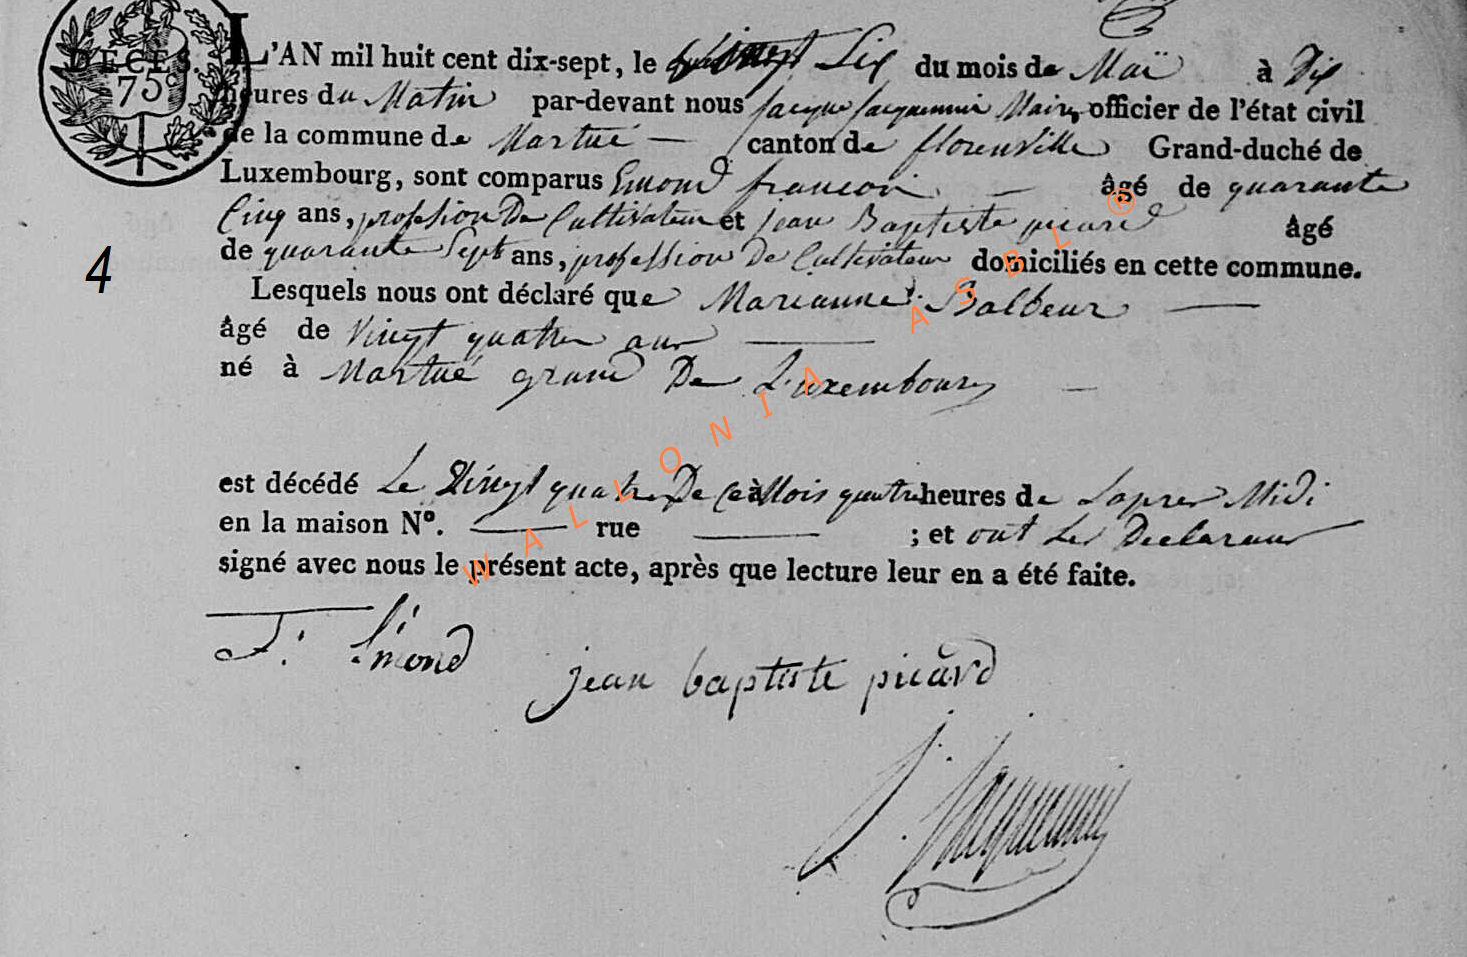 DÉCÈS.
75c
L'AN mil huit cent dix-sept, le vingt Six du mois de Maï à Dix
heures du Matin par-devant nous Jacque Jacquemin Maire, officier de l'état civil
de la commune de Martué — canton de florenville Grand-duché de
Luxembourg, sont comparus Emond francois — âgé de quarante
Cinq ans, profession De Cultivateur et jean Baptiste picard âgé
de quarante Sept ans, profession De Cultivateur domiciliés en cette commune.
4
Lesquels nous ont déclaré que Marianne Balbeur —
âgé de Vingt quatre ans —
né à Martué grand De Luxembourg —
est décédé Le Vingt quatre De Ce Mois à quatre heures de Lapres Midi
en la maison N°. — rue — ; et ont Les Declarans
signé avec nous le présent acte, après que lecture leur en a été faite.
F. Emond
jean baptiste picard
J. Jacquemin
WALLONIA ASBL ®